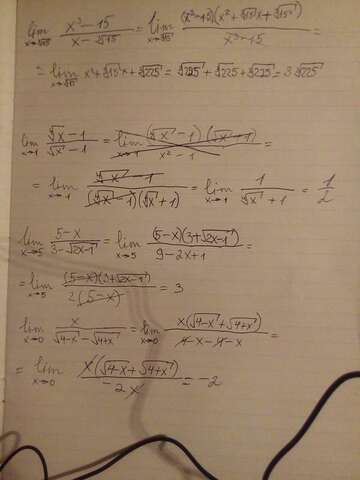 lim x→∛15 (x³-15)/(x-∛15) = lim x→∛15 (x³-15)(x²+∛15 x+∛225)/(x³-15) =
= lim x→∛15 x²+∛15 x+∛225 = ∛225+∛225+∛225 = 3∛225
lim x→1 (∜x-1)/(√x-1) = lim x→1 (∜x-1)(√x+1)/(x²-1) =
= lim x→1 (∜x-1)/((∜x-1)(∜x+1)) = lim x→1 1/(∜x+1) = 1/2
lim x→5 (5-x)/(3-√2x-1) = lim x→5 (5-x)(3+√2x-1)/(9-2x+1) =
= lim x→5 (5-x)(3+√2x-1)/(2(5-x)) = 3
lim x→0 x/(√4-x-√4+x) = lim x→0 x(√4-x+√4+x)/(4-x-4-x) =
= lim x→0 x(√4-x+√4+x)/(-2x) = -2